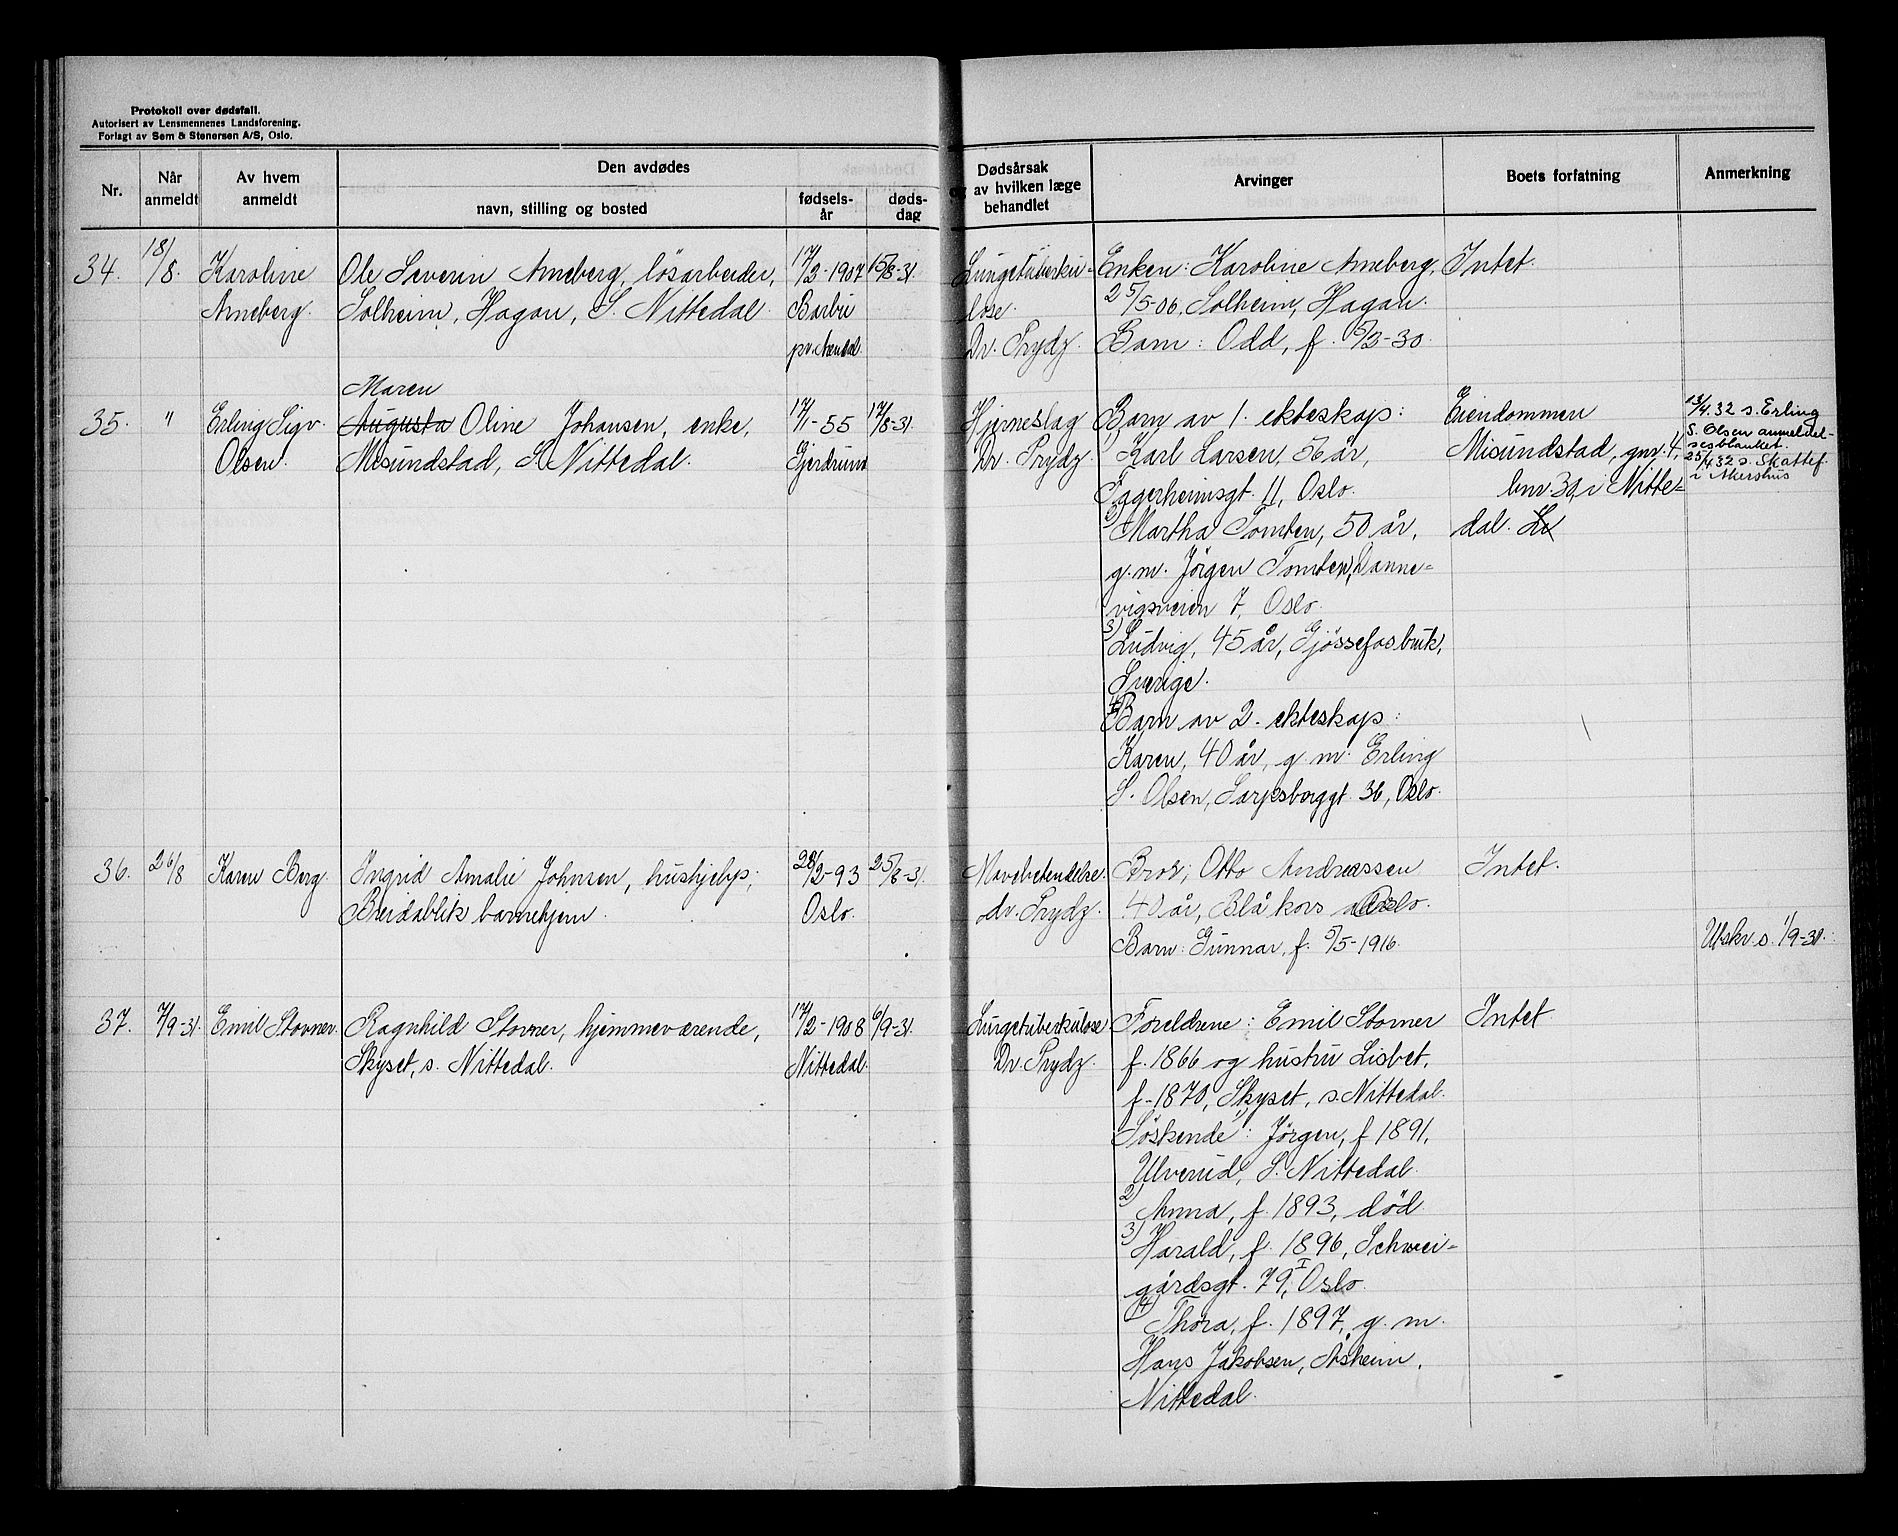 Protokoll over dødsfall.
Autorisert av Lensmennenes Landsforening.
Forlagt av Sem & Stenersen A/S, Oslo.
Nr.
Når anmeldt
Av hvem anmeldt
Den avdødes
navn, stilling og bosted
fødselsår
dødsdag
Dødsårsak
og av hvilken læge
behandlet
Arvinger
Boets forfatning
Anmerkning
34.
18/8.
Karoline
Arneberg.
Ole Severin Arneberg, løsarbeider,
Solheim, Hagan, S. Nittedal.
17/2-1907
Barbu
pr. Arendal.
15/8-31
Lungetuberku-
lose.
Dr. Prydz.
Enken: Karoline Arneberg,
25/5-06, Solheim, Hagan.
Barn: Odd, f. 5/3-30.
Intet.
35.
"
Erling Sigv.
Olsen.
Maren
Augusta Oline Johansen, enke,
Misundstad, S. Nittedal.
17/1-55
Gjerdrum
17/8-31.
Hjerneslag
Dr. Prydz.
Barn av 1. ekteskap:
1) Karl Larsen, 56 år,
Iggerheimsgt. 11, Oslo.
2) Martha Tomten, 50 år,
g.m. Jörgen Tomten, Danne-
vigsveien 7, Oslo.
3) Ludvig, 45 år, Gjössefosbruk,
Sverige.
4) Barn av 2. ekteskap:
Karen, 40 år, g.m. Erling
S. Olsen, Sarpsborggt. 36, Oslo.
Eiendommen
Misundstad, gnr. 4,
bnr. 39 i Nitte-
dal.
13/4.32 s. Erling
S. Olsen anmeldel-
sesblanket.
25/4.32 s. Skattef.
i Akershus
36.
26/8
Karen Berg.
Ingrid Amalie Johnsen, hushjelp,
Breidablik barnehjem.
28/2-93
Oslo.
25/8-31.
Mavebetendelse.
dr. Prydz.
Bror, Otto Andreassen
40 år, Blå kors Oslo.
Barn: Gunnar, f. 5/5-1916.
Intet.
Utskr. s. 1/9-31.
37.
7/9-31.
Emil Stovner.
Ragnhild Stovner, hjemmeværende,
Skyset, s. Nittedal.
17/2-1908
Nittedal.
6/9-31.
Lungetuberkulose
Dr. Prydz.
Foreldrene: Emil Stovner
f. 1866 og hustru Lisbet,
f. 1870, Skyset, s. Nittedal.
Söskende: 1) Jörgen, f 1891,
Ulverud, S. Nittedal.
2) Anna, f. 1893, död
3) Harald, f. 1896, Schwei-
gårdsgt. 79, I Oslo.
4) Thora, f. 1897, g. m.
Hans Jakobsen, Åsheim,
Nittedal.
Intet